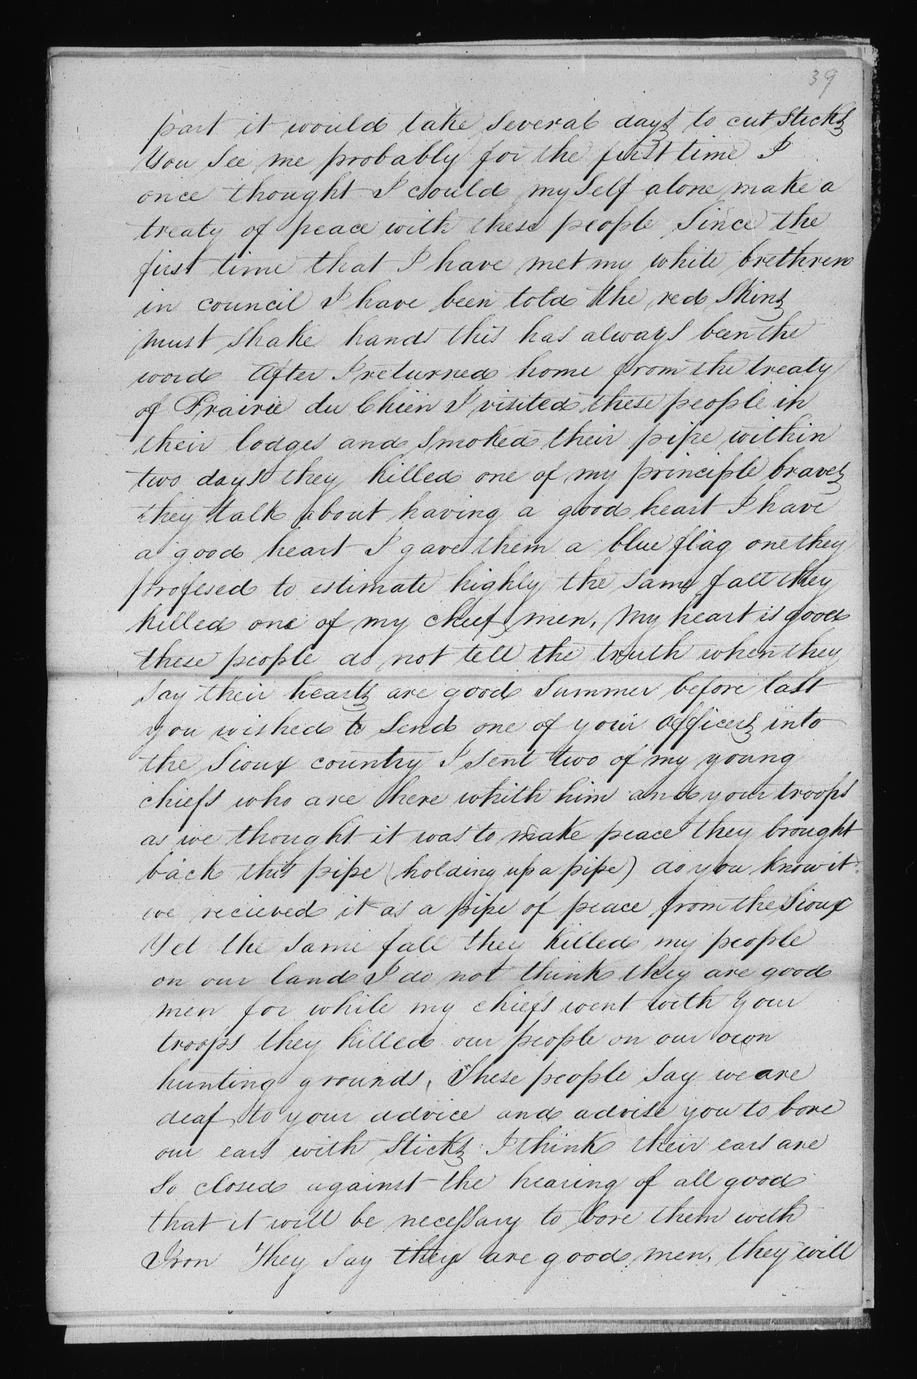 39
part it would take several days to cut sticks
You see me probably for the first time I
once thought I could my self alone make a
treaty of peace with these people Since the
first time that I have met my white brethren
in council I have been told the red Skins
must shake hands this has always been the
word After I returned home from the treaty
of Prairie du Chien I visited these people in
their lodges and smoked their pipe within
two days they killed one of my principle braves
they talk about having a good heart I have
a good heart I gave them a blue flag one they
profesed to estimate highly the same fall they
killed one of my chief men, My heart is good
these people do not tell the truth when they
say their hearts are good Summer before last
you wished to send one of your officers into
the Sioux country I sent two of my young
chiefs who are here whith him and your troops
as we thought it was to make peace they brought
back this pipe (holding up a pipe) do you know it?
we recieved it as a pipe of peace from the Sioux
Yet the same fall they killed my people
on our land I do not think they are good
men for while my chiefs went with your
troops they killed our people on our own
hunting grounds, These people say we are
deaf to your advice and advise you to bore
our ears with sticks I think their ears are
so closed against the hearing of all good
that it will be necessary to bore them with
Iron They say they are good men, they will